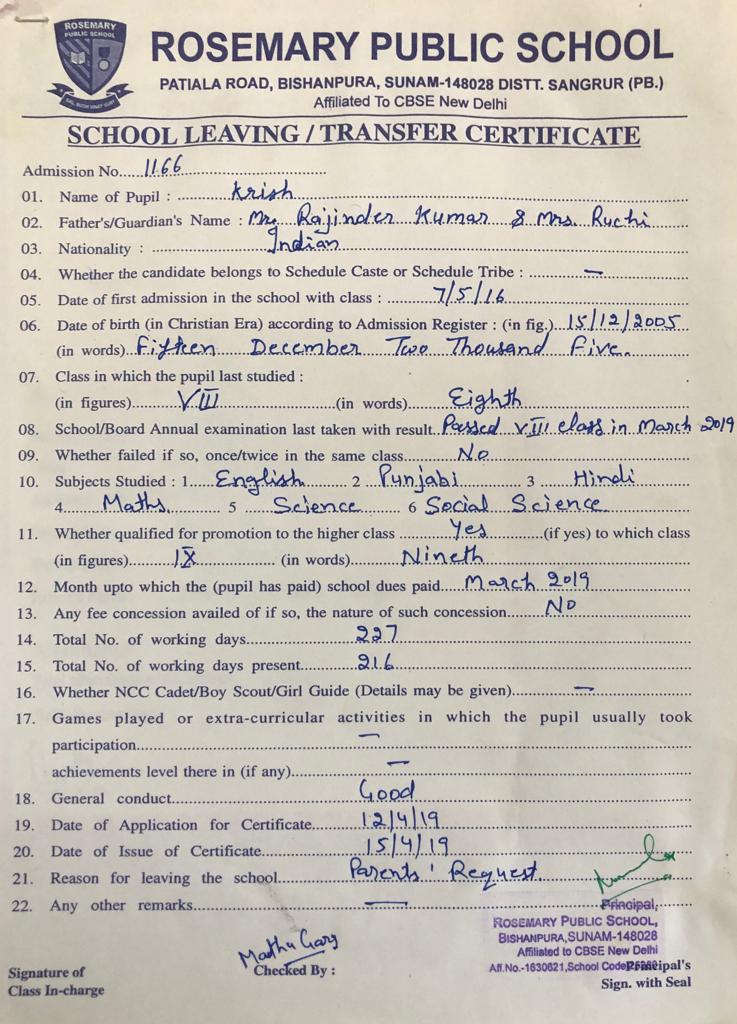 ROSEMARY
PUBLIC SCHOOL
ROSEMARY PUBLIC SCHOOL
PATIALA ROAD, BISHANPURA, SUNAM-148028 DISTT. SANGRUR (PB.)
Affiliated To CBSE New Delhi
SCHOOL LEAVING / TRANSFER CERTIFICATE
Admission No.....1166
01. Name of Pupil : Krish
02. Father's/Guardian's Name : Mr. Rajinder Kumar & Mrs. Ruchi
03. Nationality : Indian
04. Whether the candidate belongs to Schedule Caste or Schedule Tribe : —
05. Date of first admission in the school with class : 7/5/16
06. Date of birth (in Christian Era) according to Admission Register : (in fig.) 15/12/2005
(in words) Fifteen December Two Thousand Five.
07. Class in which the pupil last studied :
(in figures) VIII (in words) Eighth
08. School/Board Annual examination last taken with result. Passed VIII class in March 2019
09. Whether failed if so, once/twice in the same class No
10. Subjects Studied : 1. English 2 Punjabi 3 Hindi
4. Maths 5 Science 6 Social Science
11. Whether qualified for promotion to the higher class Yes (if yes) to which class
(in figures) IX (in words) Nineth
12. Month upto which the (pupil has paid) school dues paid March 2019
13. Any fee concession availed of if so, the nature of such concession No
14. Total No. of working days 227
15. Total No. of working days present 216
16. Whether NCC Cadet/Boy Scout/Girl Guide (Details may be given) —
17. Games played or extra-curricular activities in which the pupil usually took
participation —
achievements level there in (if any) —
18. General conduct Good
19. Date of Application for Certificate 12/4/19
20. Date of Issue of Certificate 15/4/19
21. Reason for leaving the school Parents' Request
22. Any other remarks —
Principal,
ROSEMARY PUBLIC SCHOOL,
BISHANPURA, SUNAM-148028
Affiliated to CBSE New Delhi
Aff.No.-1630621, School Code
Madhu Garg
Signature of
Class In-charge
Checked By :
Principal's
Sign. with Seal